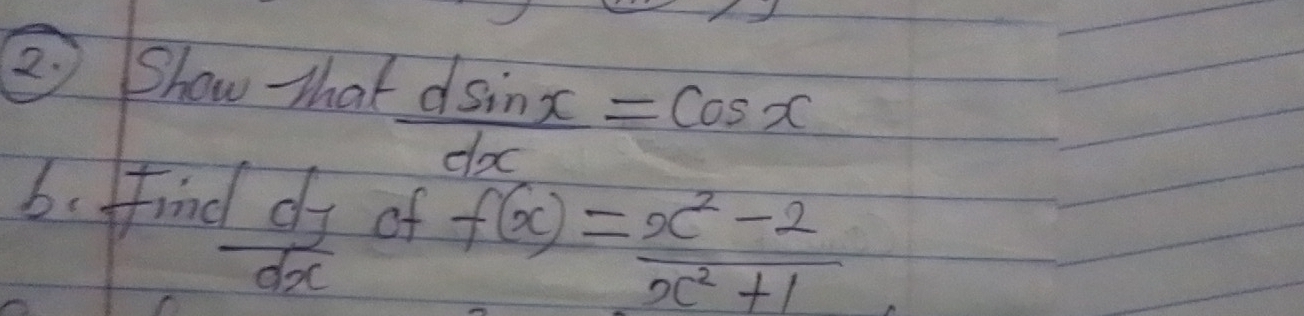 2. Show that dsinx/dx = Cos x
b. Find dy/dx of f(x) = x² - 2/x² + 1